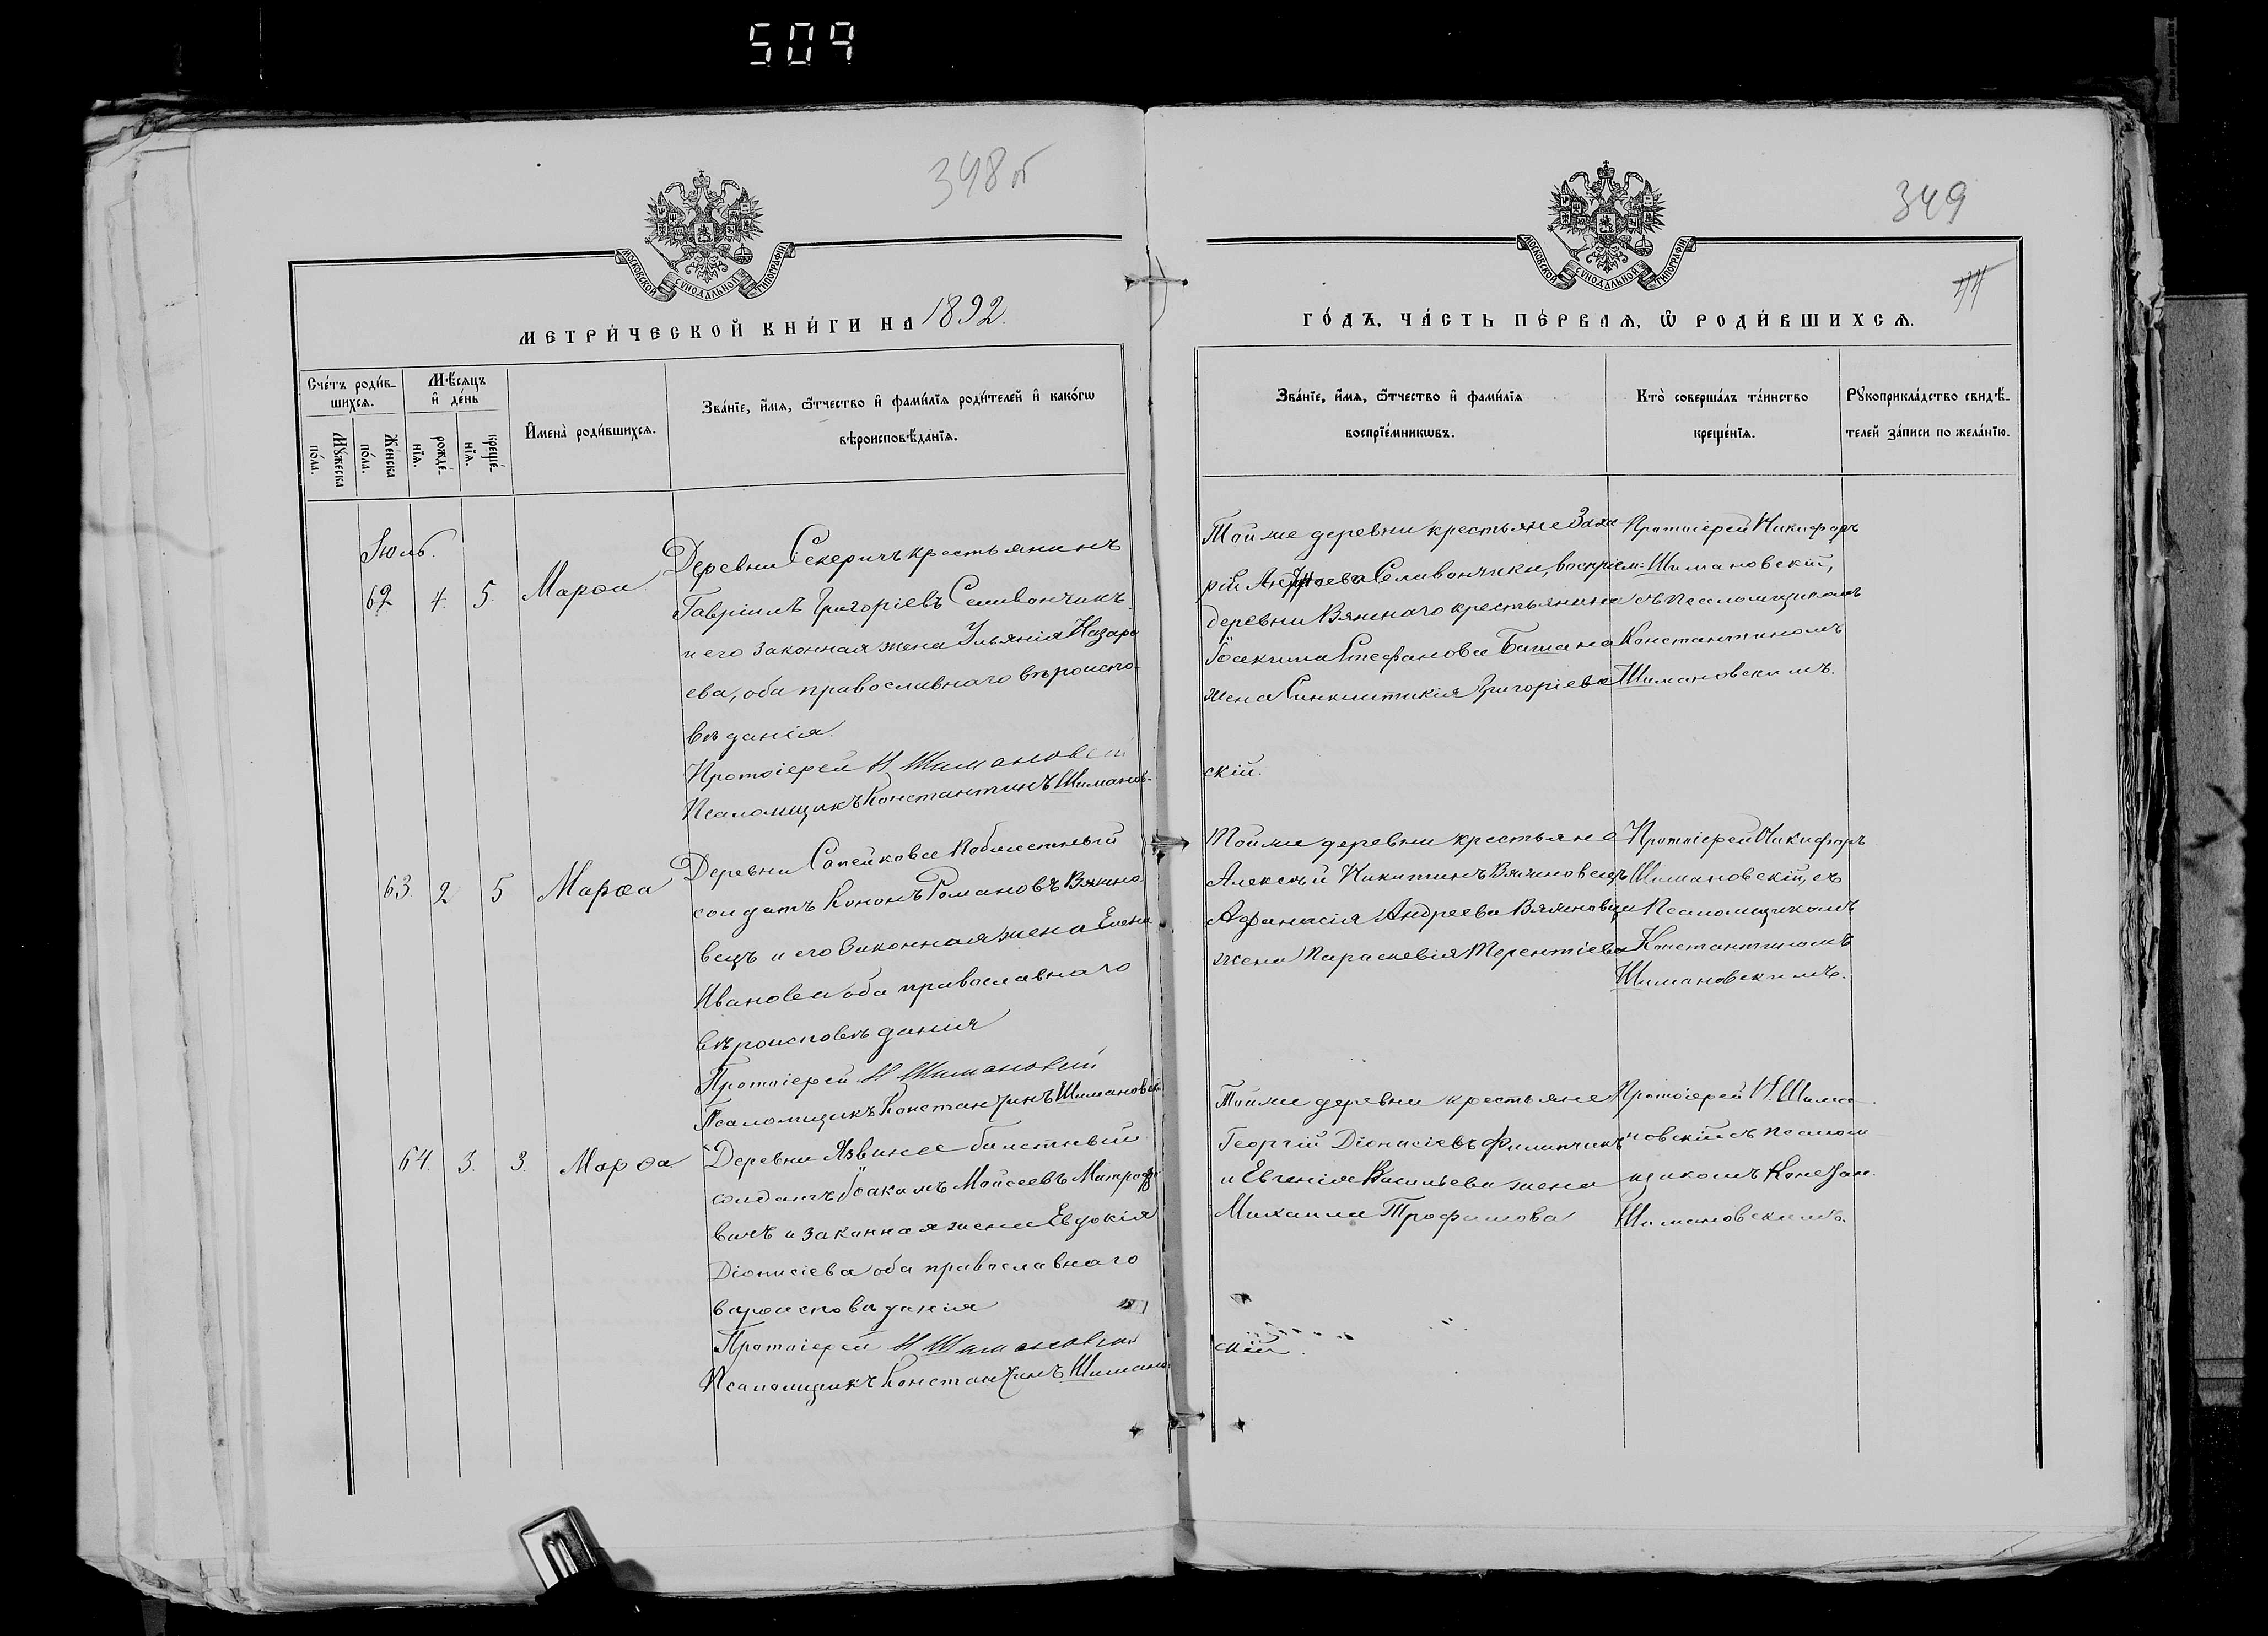 509
348 об
МОСКОВСКОЙ СѴНОДАЛЬНОЙ ТИПОГРАФІИ
МЕТРИ́ЧЕСКОЙ КНИ́ГИ НА 1892.
Сче́тъ роди́в-
шихсѧ.
Мѣ́сѧцъ
и҆ де́нь
Мꙋ́жеска
по́ла.
Же́нска
по́ла.
рожде́-
нїѧ.
креще́-
нїѧ.
И҆мена̀ роди́вшихсѧ.
Зва́нїе, и҆́мѧ, ѻ҆́тчество и҆ фами́лїѧ роди́телей и҆ како́гѡ
вѣроисповѣ́данїѧ.
Іюль.
62 4. 5. Марѳа
Деревни Секеричъ крестьянинъ
Гавріилъ Григоріевъ Селивончикъ
и его законная жена Ульянія Назарі
ева, оба православнаго вѣроиспо-
вѣданія.
Протоіерей Н Шимановскій
Псаломщикъ Константинъ Шиманов-
63. 2 5 Марѳа
Деревни Сапейкова
солдатъ Кононъ Романовъ Вяжно
вецъ и его законная жена Елена
Иванова оба православнаго
вѣроисповѣданія
Протоіерей Н Шимановскій
Псаломщикъ Константинъ Шимановскій
64. 3. 3. Марѳа
Деревни Язвина билетный
солдатъ Іоакимъ Моисеевъ Митрофо
вичъ и законная жена Евдокія
Діонисіева оба православнаго
вѣроисповѣданія
Протоіерей Н Шимановскій
Псаломщикъ Константинъ Шиманов
349
44
МОСКОВСКОЙ СѴНОДАЛЬНОЙ ТИПОГРАФІИ
ГО́ДЪ, ЧА́СТЬ ПЕ́РВАѦ, Ѡ҆ РОДИ́ВШИХСѦ.
Зва́нїе, и҆́мѧ, ѻ҆́тчество и҆ фами́лїѧ
воспрїе́мникѡвъ.
Кто̀ соверша́лъ та́инство
креще́нїѧ.
Рꙋкоприкла́дство свидѣ́-
телей за́писи по жела́нїю.
Той же деревни крестьяне Заха
рій Селивончики, воспріем:
деревни Вяжнаго крестьянина
Іоакима Стефанова Батана
жена Синклитикія Григоріева
скій.
Протоіерей Никифоръ
Шимановскій,
съ псаломщикомъ
Константиномъ
Шимановскимъ.
Той же деревни крестьяне
Алексѣй Никитинъ Вяжновецъ
Афанасія Андреева Вяжновца
жена Параскевія Терентіева
Протоіерей Никифоръ
Шимановскій, съ
Псаломщикомъ
Константиномъ
Шимановскимъ.
Той же деревни крестьяне
Георгій Діонисіевъ Филипчикъ
и Евгенія Васильева жена
Михаила Трофимова
скій.
Протоіерей Н. Шима
новскій съ псалом
щикомъ Констан.
Шимановскимъ.